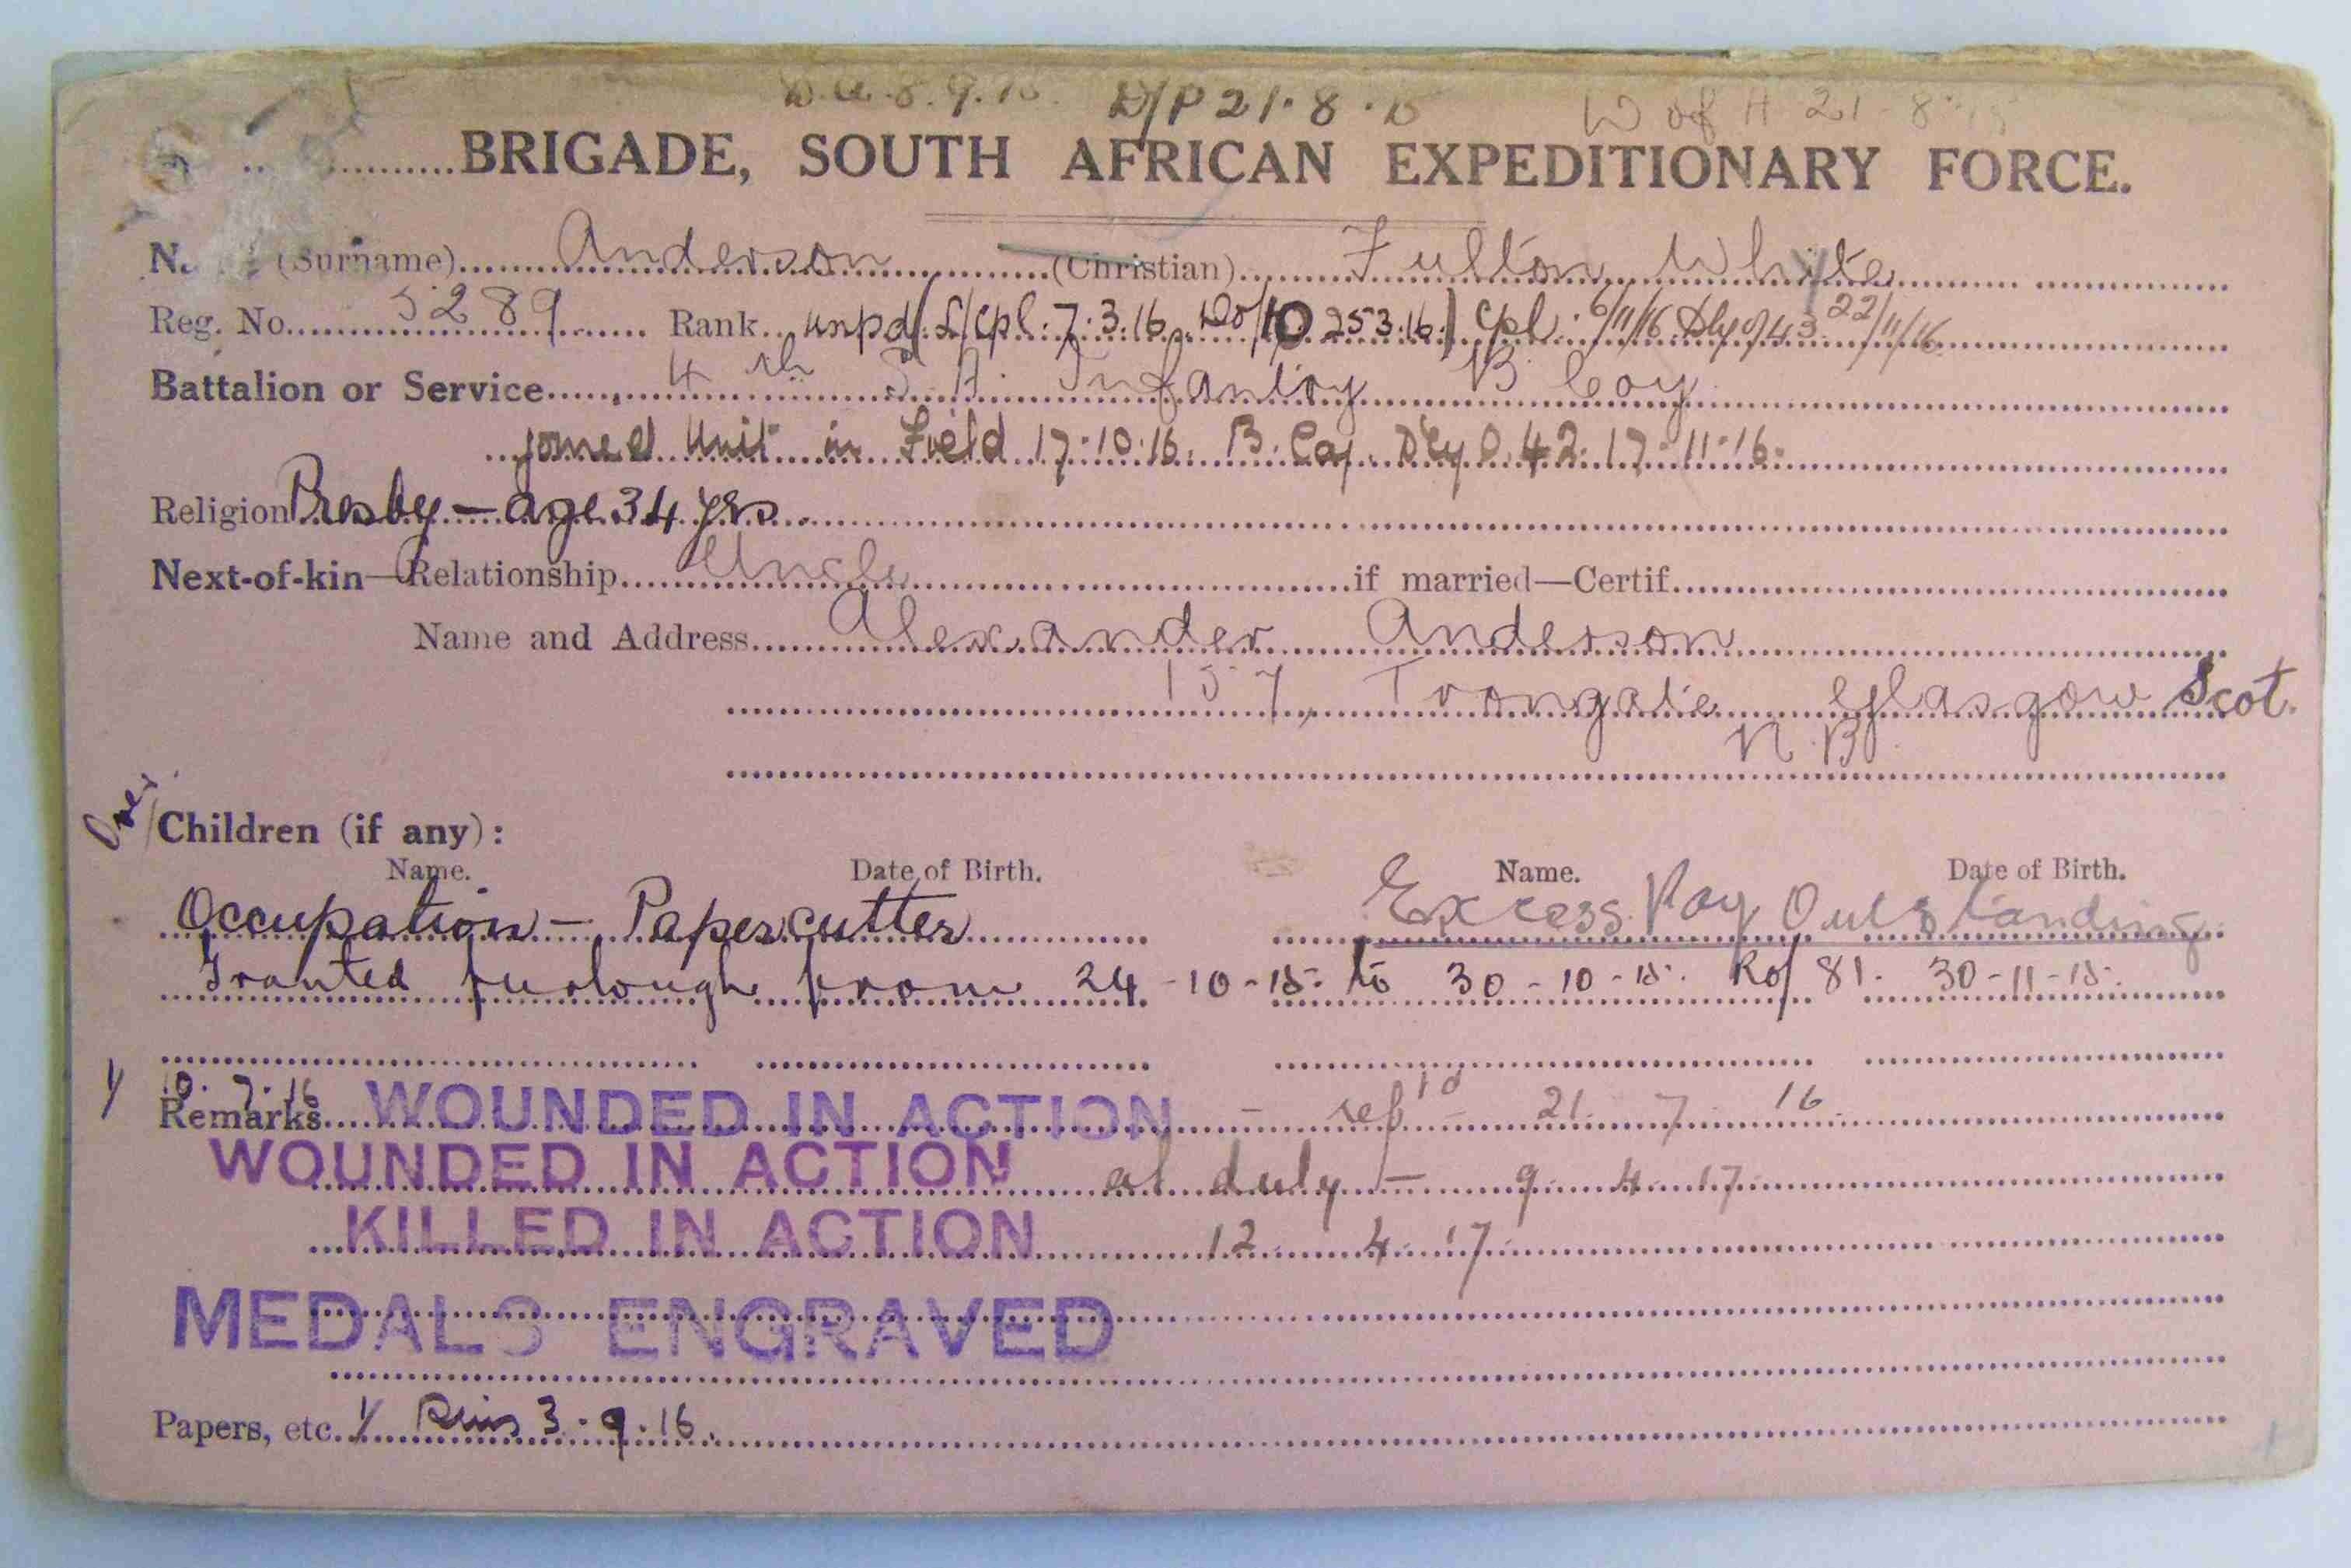 D/P 21.8.15 W of H 21.8.15
BRIGADE, SOUTH AFRICAN EXPEDITIONARY FORCE.
(Surname) Anderson (Christian) Fulton Whyte
Reg. No. 5289 Rank unpd L/Cpl. 7.3.16 25.3.16 Cpl. 6/11/16 43 22/11/16
Battalion or Service 4th S.A. Infantry B Coy
joined Unit in Field 17.10.16. B. Coy. D'ly O. 42. 17.11.16.
Religion Presby — age 34 yrs.
Next-of-kin—Relationship Uncle if married—Certif.
Name and Address Alexander Anderson
157, Trongate Glasgow Scot.
N.B.
Children (if any):
Name. Date of Birth. Name. Date of Birth.
Occupation — Paper cutter Excess Pay Outstanding
Granted furlough from 24-10-15. to 30-10-15. Ro/ 81. 30-11-15.
10.7.16
Remarks WOUNDED IN ACTION — 21.7.16
WOUNDED IN ACTION at duty — 9.4.17
KILLED IN ACTION 12.4.17
MEDALS ENGRAVED
Papers, etc. 3.9.16.